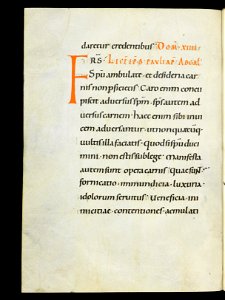 daretur credentibus Dom· xiiii·
FRS· Lectio ep pauli ad Galat
Spu ambulate · et desideria car
nis non pficietis Caro enim concu
piscit adversus spm · sps autem ad
versus carnem haec enim sibi invi
cem adversantur · ut non quaecuq
vultis illa faciatis · quod si spu duci
mini · non estis sub lege manifesta
autem sunt opera carnis Quae sunt
fornicatio · inmundicia · luxuria
idolorum servitus Veneficia · ini
micitiae · contentiones · aemulati